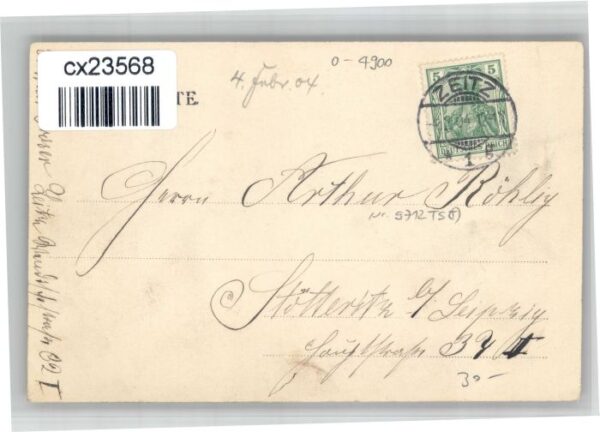 cx23568
0-4900
4. Febr. 04
TE.
5 5
ZEITZ
1
REICH
Herrn Arthur Röhlig
Nr. 5712 TS
Stötteritz b/ Leipzig
Hauptstraße 39 II
30-
Zeitz